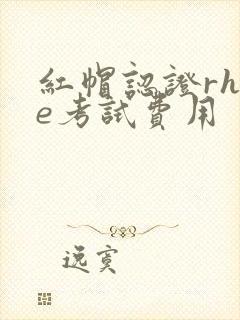 紅帽認證rh
e考試費用
逸寞